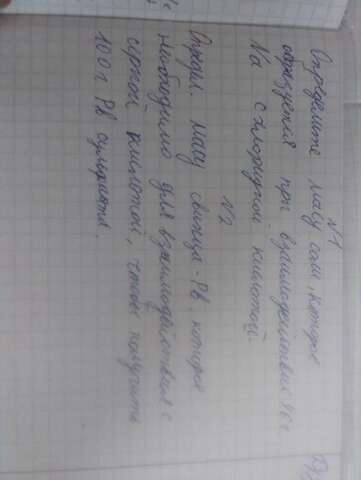 N1
Определите массу соли, которая
образуется при взаимодействии 46 г
Na с хлоридной кислотой.
N2
Опреdел. массу свинца - Pb, которая
необходимо для взаимодействия с
серной кислотой, чтобы получить
100 г Pb сульфата.